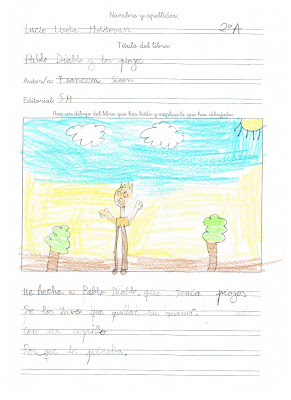 Nombre y apellidos:
Lucía 2ºA
Título del libro:
Pablo Diablo y los piojos
Autor/a: Francesca Simon
Editorial: S.M
Haz un dibujo del libro que has leído y explica lo que has dibujado:
He hecho a Pablo Diablo que tenía piojos
Se los tuvo que quitar su mamá.
Con un cepillo
Porque le picaba.